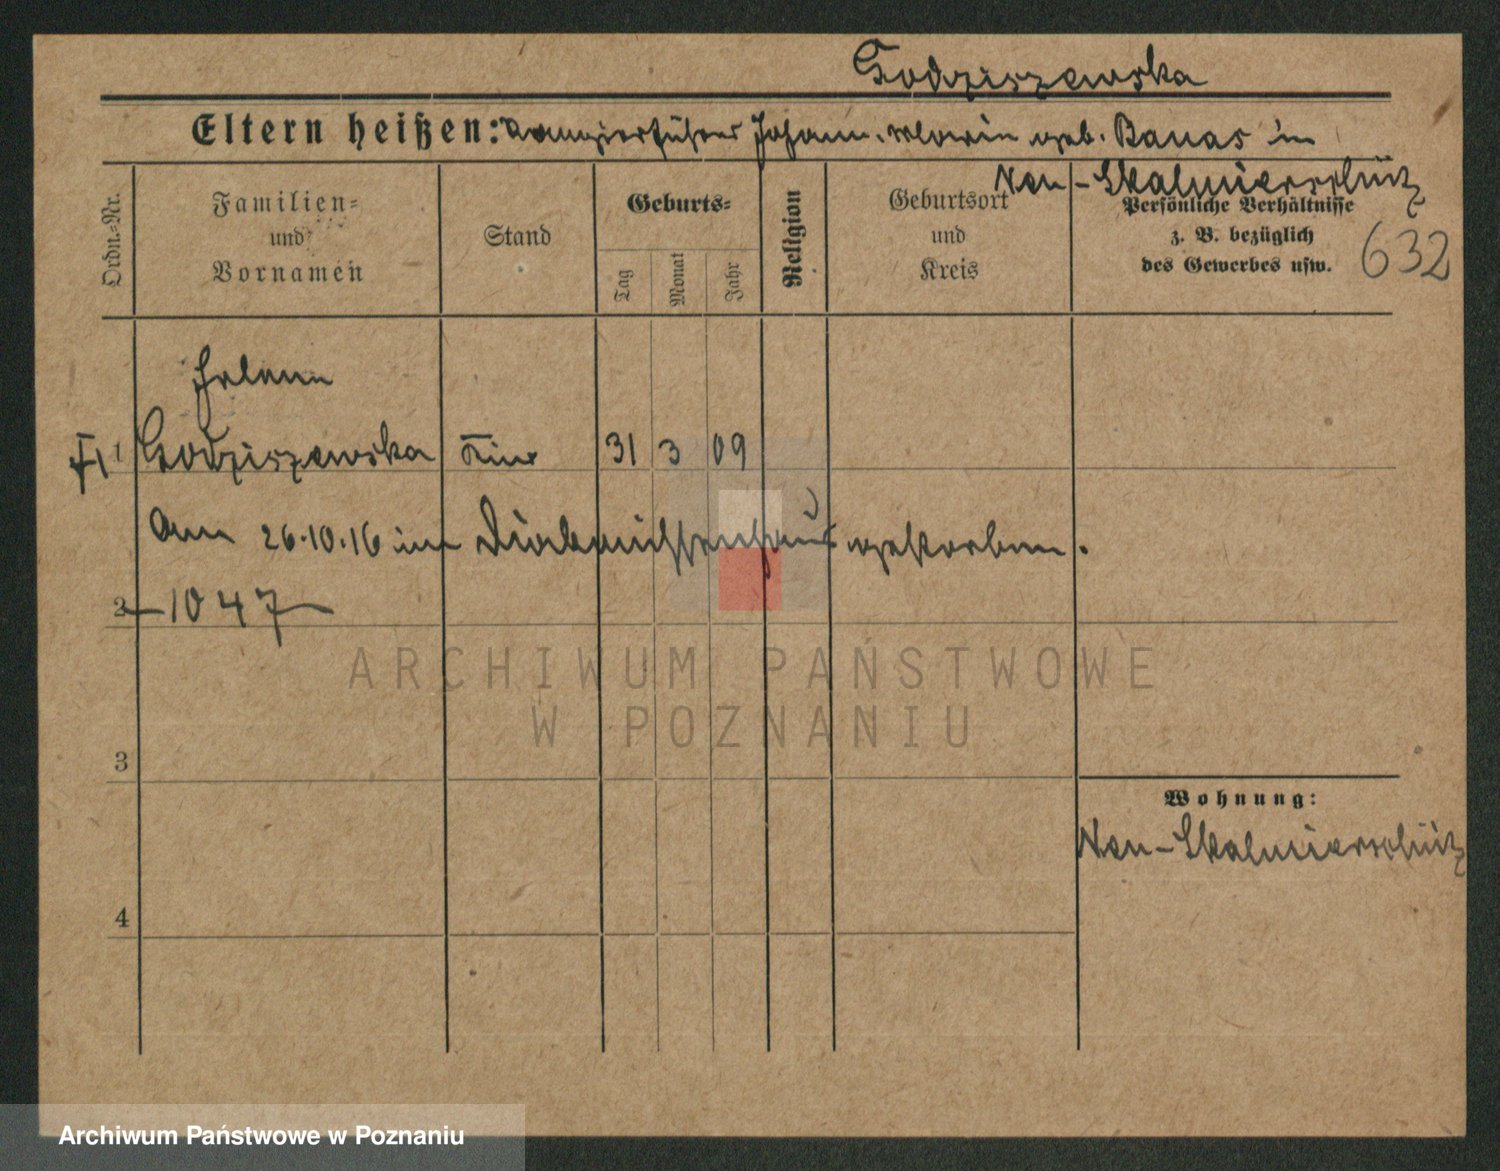 Godziszewska
Eltern heißen: Rangierführer Johann. Marie geb. Banas in
Neu-Skalmierschütz
Ordn.-Nr.
Familien-
und
Vornamen
Stand
Geburts-
Tag
Monat
Jahr
Religion
Geburtsort
und
Kreis
Persönliche Verhältnisse
z. B. bezüglich
des Gewerbes usw.
632
Helene
1 Godziszewska Kind 31 3 09
Am 26.10.16 im Diakonissenhaus gestorben.
2 -1047-
3
4
Wohnung:
Neu-Skalmierschütz
ARCHIWUM PAŃSTWOWE
W POZNANIU
Archiwum Państwowe w Poznaniu